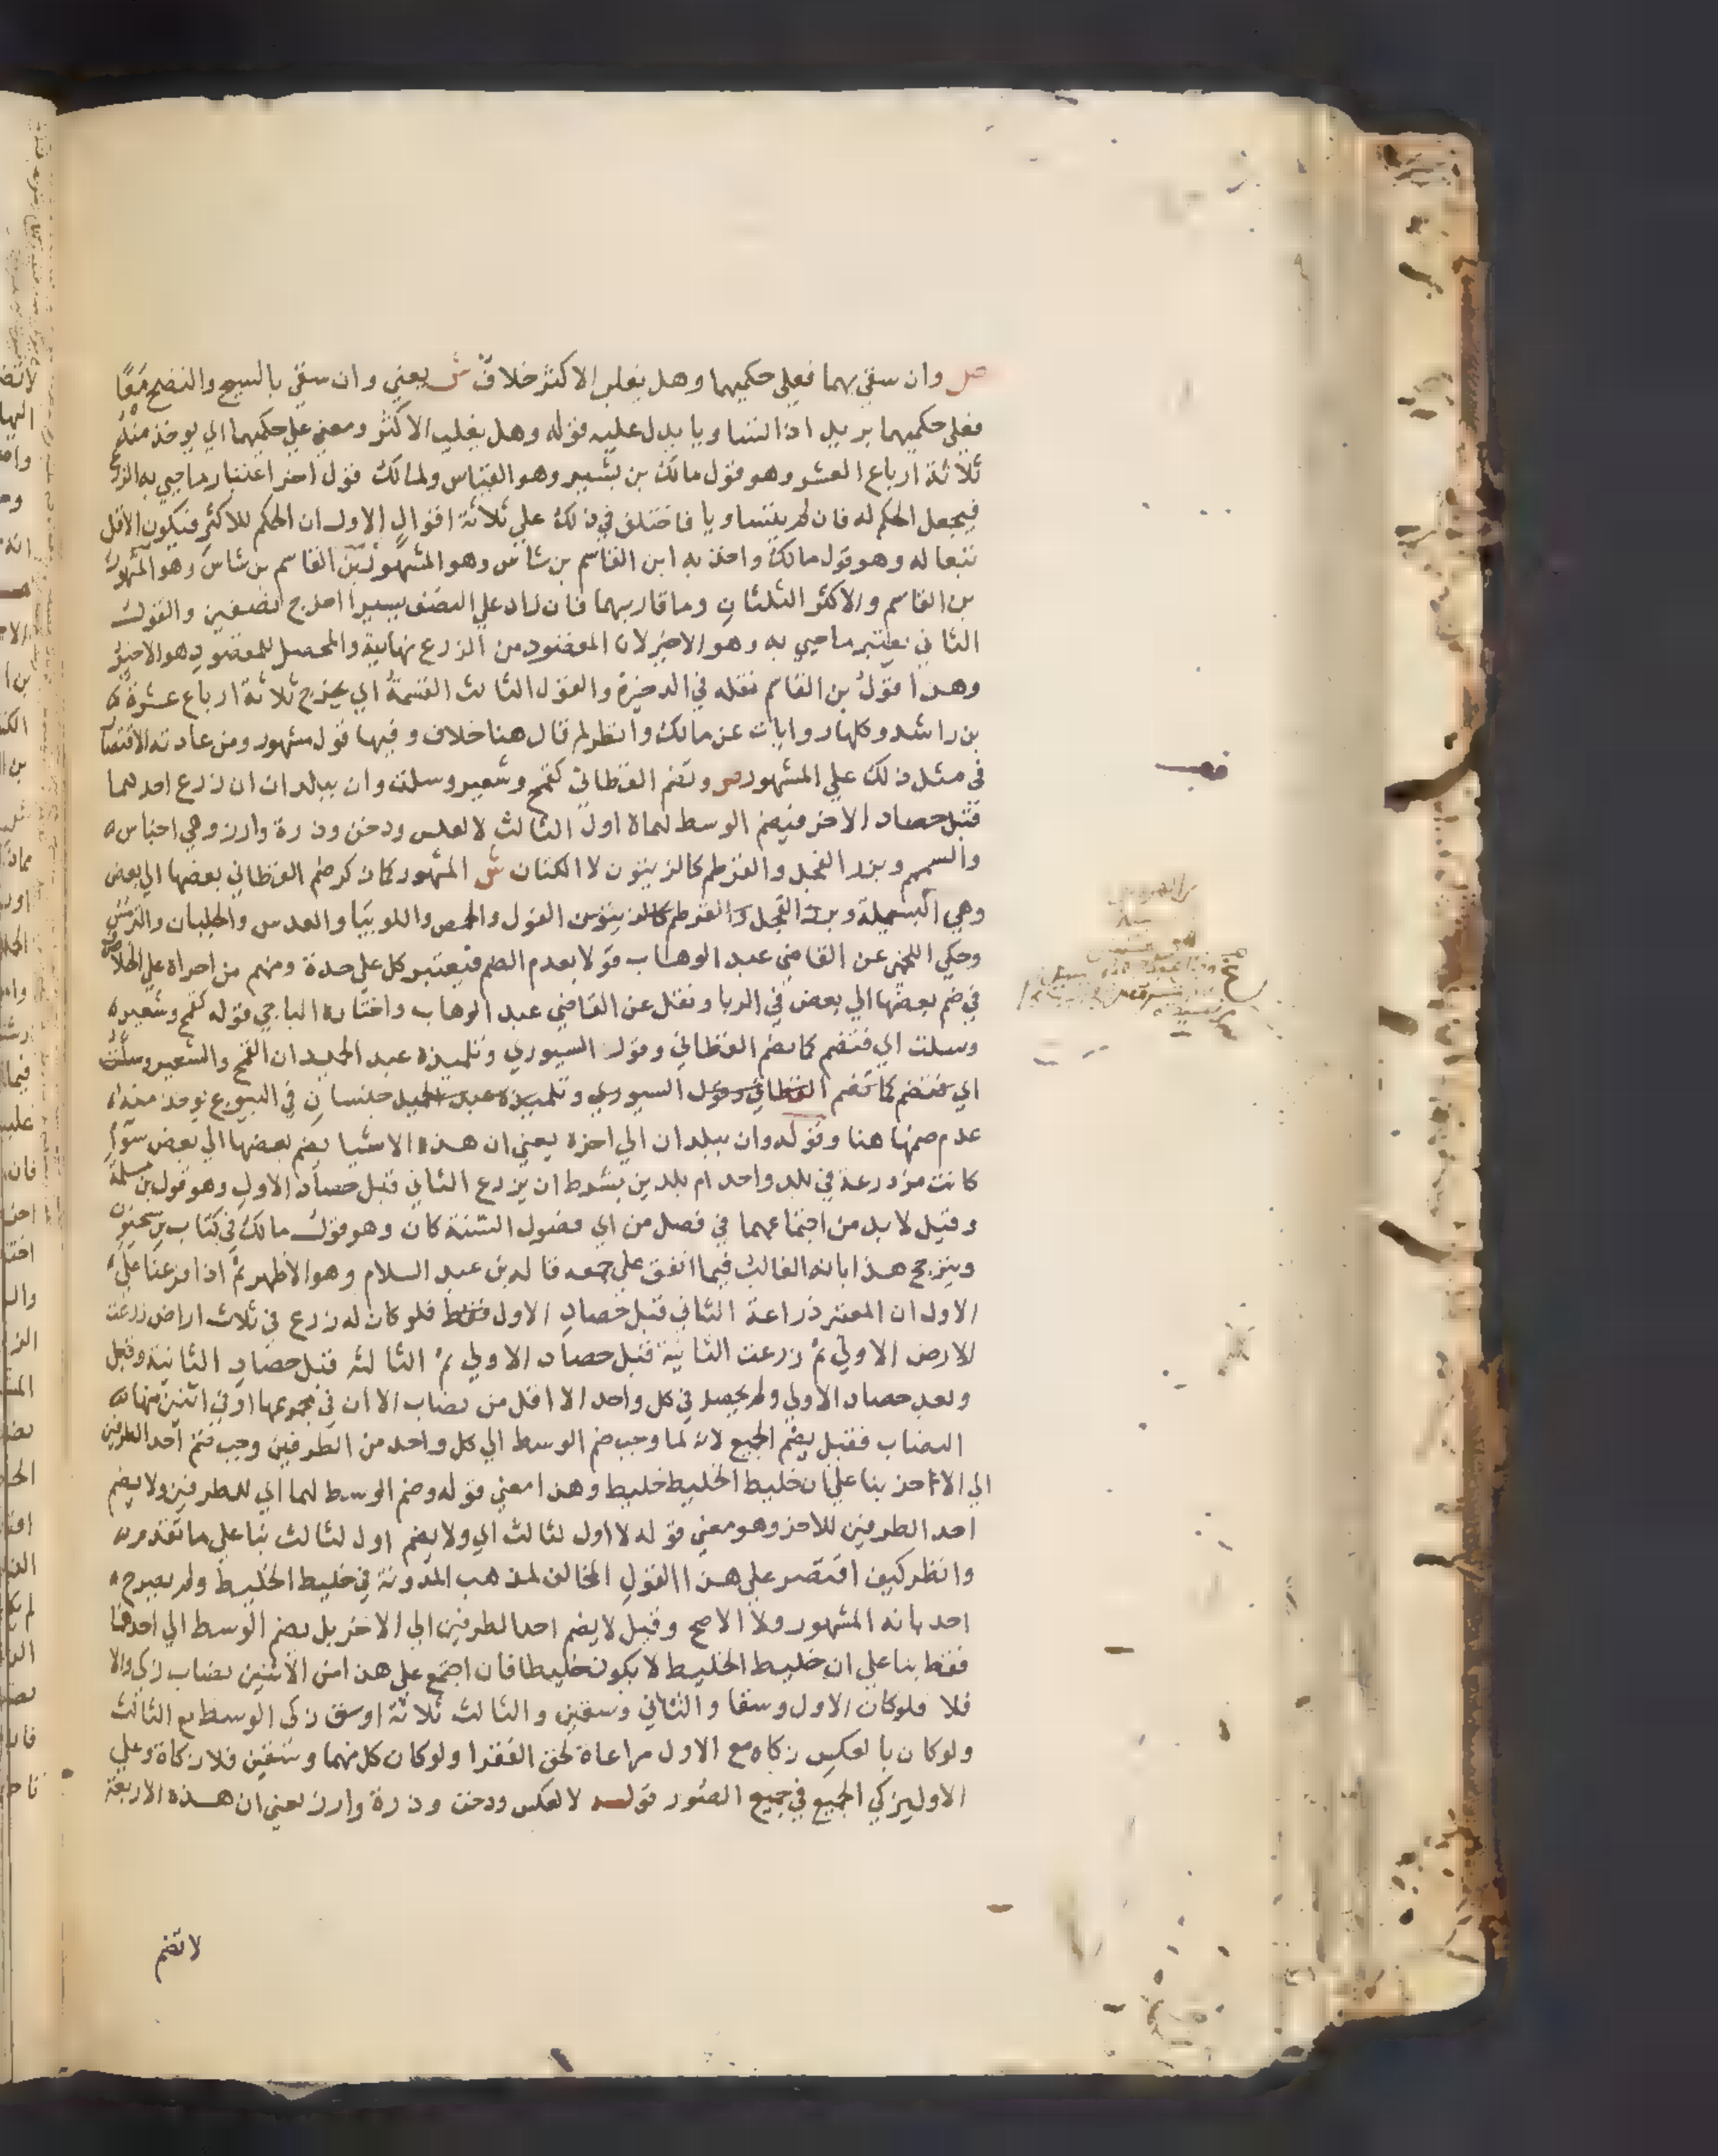 ص وان سقي بهما فعلي حكميهما وهل يغلب الاكثر خلاف ش يعني وان سقي بالسيح والنضح معًا
فعلي حكميهما يريد اذا تساويا يدل عليه قوله وهل يغلب الاكثر ومعني علي حكميهما اي يوخذ منه
ثلاثة ارباع العشر وهو قول مالك بن بشير وهو القياس ولمالك قول اخر اعتبار ما حيي به الزرع
فيجعل الحكم له فان لم يتساويا فاختلف في ذلك علي ثلاثة اقوال الاول ان الحكم للاكثر فيكون الاقل
تبعا له وهو قول مالك واخذ به ابن القاسم بن شاس وهو المشهور بن القاسم بن شاس وهو المشهور
بن القاسم والاكثر الثلثان وما قاربهما فان زاد علي النصف يسيرا اخرج نصفين والقول
الثاني يعتبر ما حيي به وهو الاخير لان المقصود من الزرع نهايته والمحصل للمقصود هو الاخير
وهذا قول بن القاسم نقله في الدخيرة والقول الثالث القسمة اي يخرج ثلاثة ارباع عشره
بن راشد وكلها روايات عن مالك وانظر لم قال هنا خلاف وفيها قول مشهور ومن عادته الاقتصار
في مثل ذلك علي المشهور ص وتضم القطاني كقمح وشعير وسلت وان ببلدان ان زرع احدهما
قبل حصاد الاخر فيضم الوسط لهما لا اول الثالث لا لعلس ودخن وذرة وارز وهي اجناس
والسمسم وبزر الفجل والقرطم كالزيتون لا الكتان ش المشهور كما ذكر ضم القطاني بعضها الي بعض
وهي البسيلة وبزر الفجل والقرطم كالزيتون الفول والحمص واللوبيا والعدس والجلبان والترمس
وحكي اللخمي عن القاضي عبد الوهاب قولا بعدم الضم فيعتبر كل علي حدة ومنهم من اجراه علي الخلاف
في ضم بعضها الي بعض في الربا ونقل عن القاضي عبد الوهاب واختاره الباجي قوله كقمح وشعير
وسلت اي فتضم كما تضم القطاني وقول السيوري وتلميذه عبد الحميد ان القمح والشعير وسلت
اي فتضم كما تضم القطاني وقول السيوري وتلميذه عبد الحميد جنسان في البيوع يوخذ منه
عدم ضمها هنا وقوله وان ببلدان الي اخره يعني ان هذه الاشيا يضم بعضها الي بعض سوا
كانت مزدرعة في بلد واحد ام بلدين بشرط ان يزرع الثاني قبل حصاد الاول وهو قول بن مسلمة
وقيل لا بد من اجتماعهما في فصل من اي فصول السنة كان وهو قول مالك في كتاب بن سحنون
ويترجح هذا بانه الغالب فيما اتفق علي جمعه قاله بن عبد السلام وهو الاظهر ثم اذا فرعنا علي
الاول ان المعتبر زراعة الثاني قبل حصاد الاول فقط فلو كان له زرع في ثلاث اراض زرعت
الارض الاولي ثم زرعت الثانية قبل حصاد الاولي ثم الثالثه قبل حصاد الثانية وقبل
وبعد حصاد الاولي ولم يحصل في كل واحد الا اقل من نصاب الا ان في مجموعها او في اثنين منها
النصاب فقيل يضم الجميع لانه لما وجب ضم الوسط الي كل واحد من الطرفين وجب ضم احد الطرفين
الي الاخر بنا علي ان خليط الخليط خليط وهذا معني قوله وضم الوسط لهما اي للطرفين ولا يضم
احد الطرفين للاخر وهو معني قوله لا اول لثالث اي ولا يضم اول لثالث بنا علي ما تقدم
وانظر كيف اقتصر علي هذا القول المخالف لمذهب المدونة في خليط الخليط ولم يصرح
احد بانه المشهور ولا الاصح وقيل لا يضم احد الطرفين الي الاخر بل يضم الوسط الي احدهما
فقط بنا علي ان خليط الخليط لا يكون خليطا فان اجتمع علي هذا من الاثنين نصاب زكي والا
فلا فلو كان الاول وسقا والثاني وسقين والثالث ثلاثة اوسق زكي الوسط مع الثالث
ولو كان بالعكس زكاه مع الاول مراعاة لحق الفقرا ولو كان كل منهما وسقين فلا زكاة وعلي
الاول يزكي الجميع في جميع الصور قوله لا لعكس ودخن وذرة وارز يعني ان هذه الاربعة
لا تضم